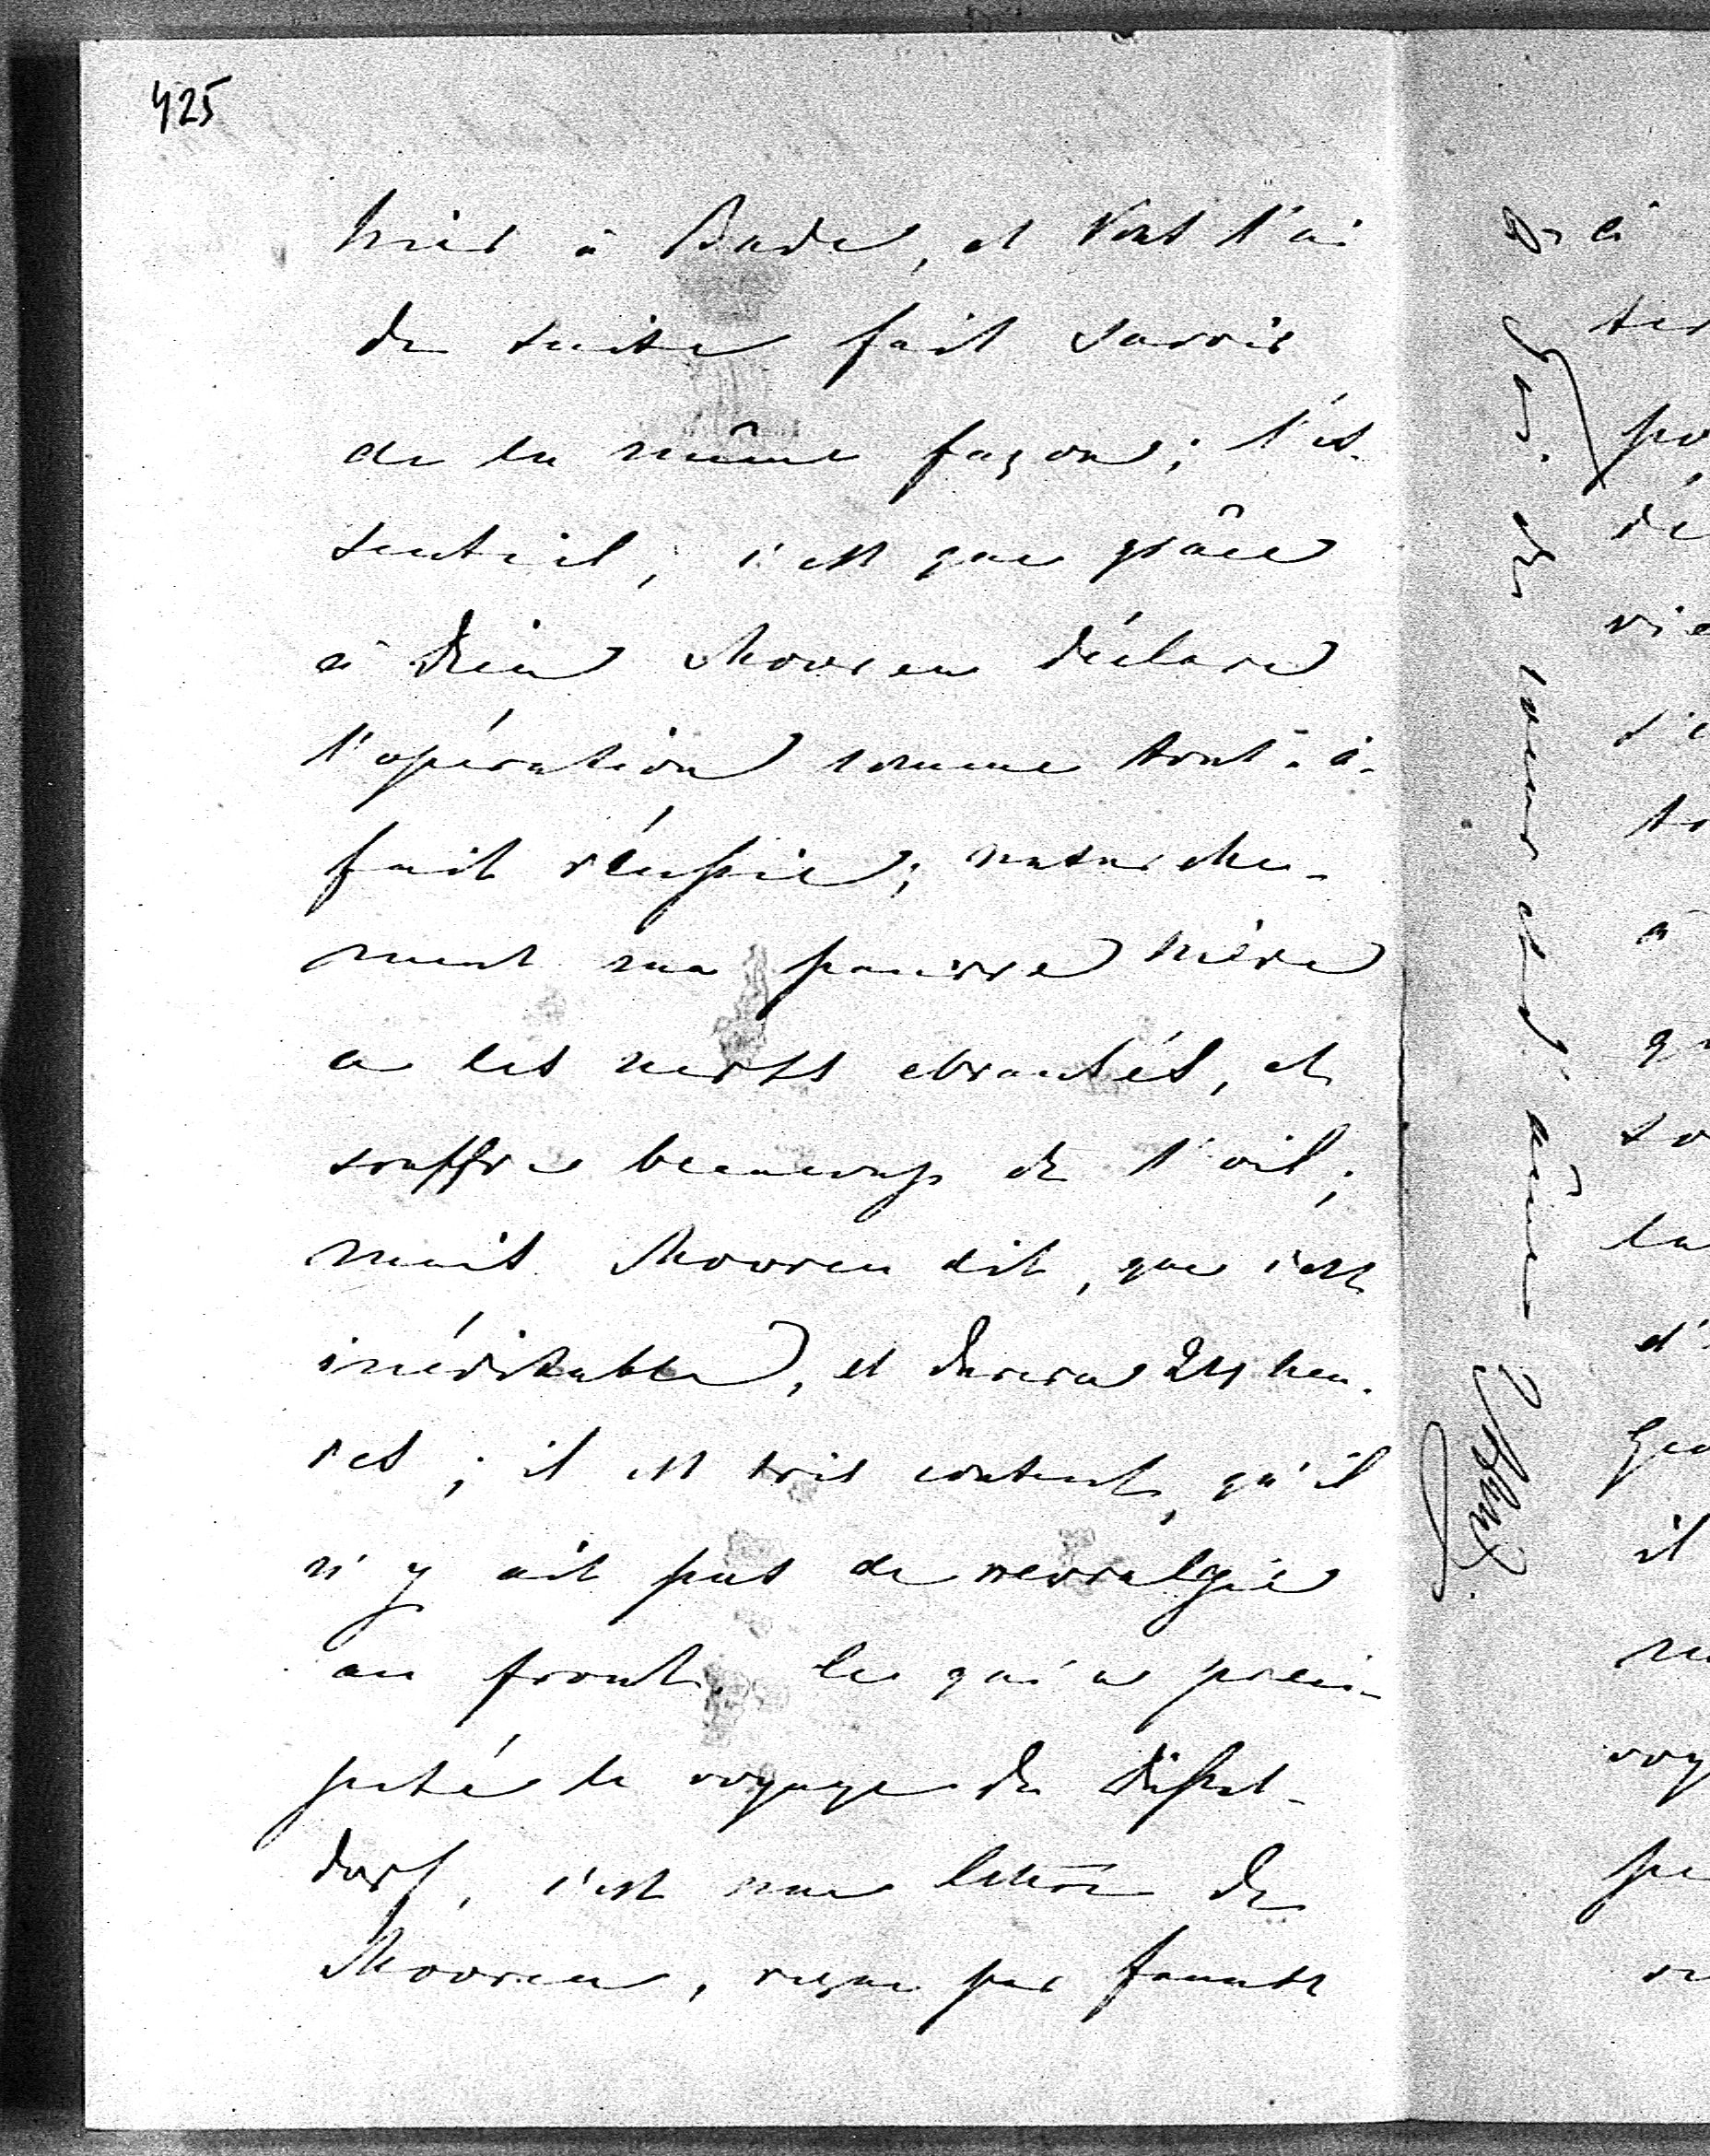 425
hier à Bade, et Vous l'ai
de suite fait savoir
de la même façon; l'es-
sentiel, c'est que grâce
à Dieu Mooren déclare
l'opération comme tout-à-
fait réussie; naturelle-
ment ma pauvre Mère
a les nerfs ebranlés, et
souffre beaucoup de l'œil;
mais Mooren dit, que c'est
inévitable, et durera 24 heu-
res; il est très content, qu'il
n'y ait pas de nevralgie
au front. Ce qui a préci-
pité le voyage de Düssel-
dorf, c'est une lettre de
Mooren, reçue par
de cœur et d'âme